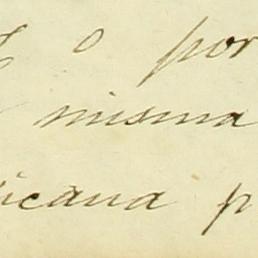 o por
misma
icana p